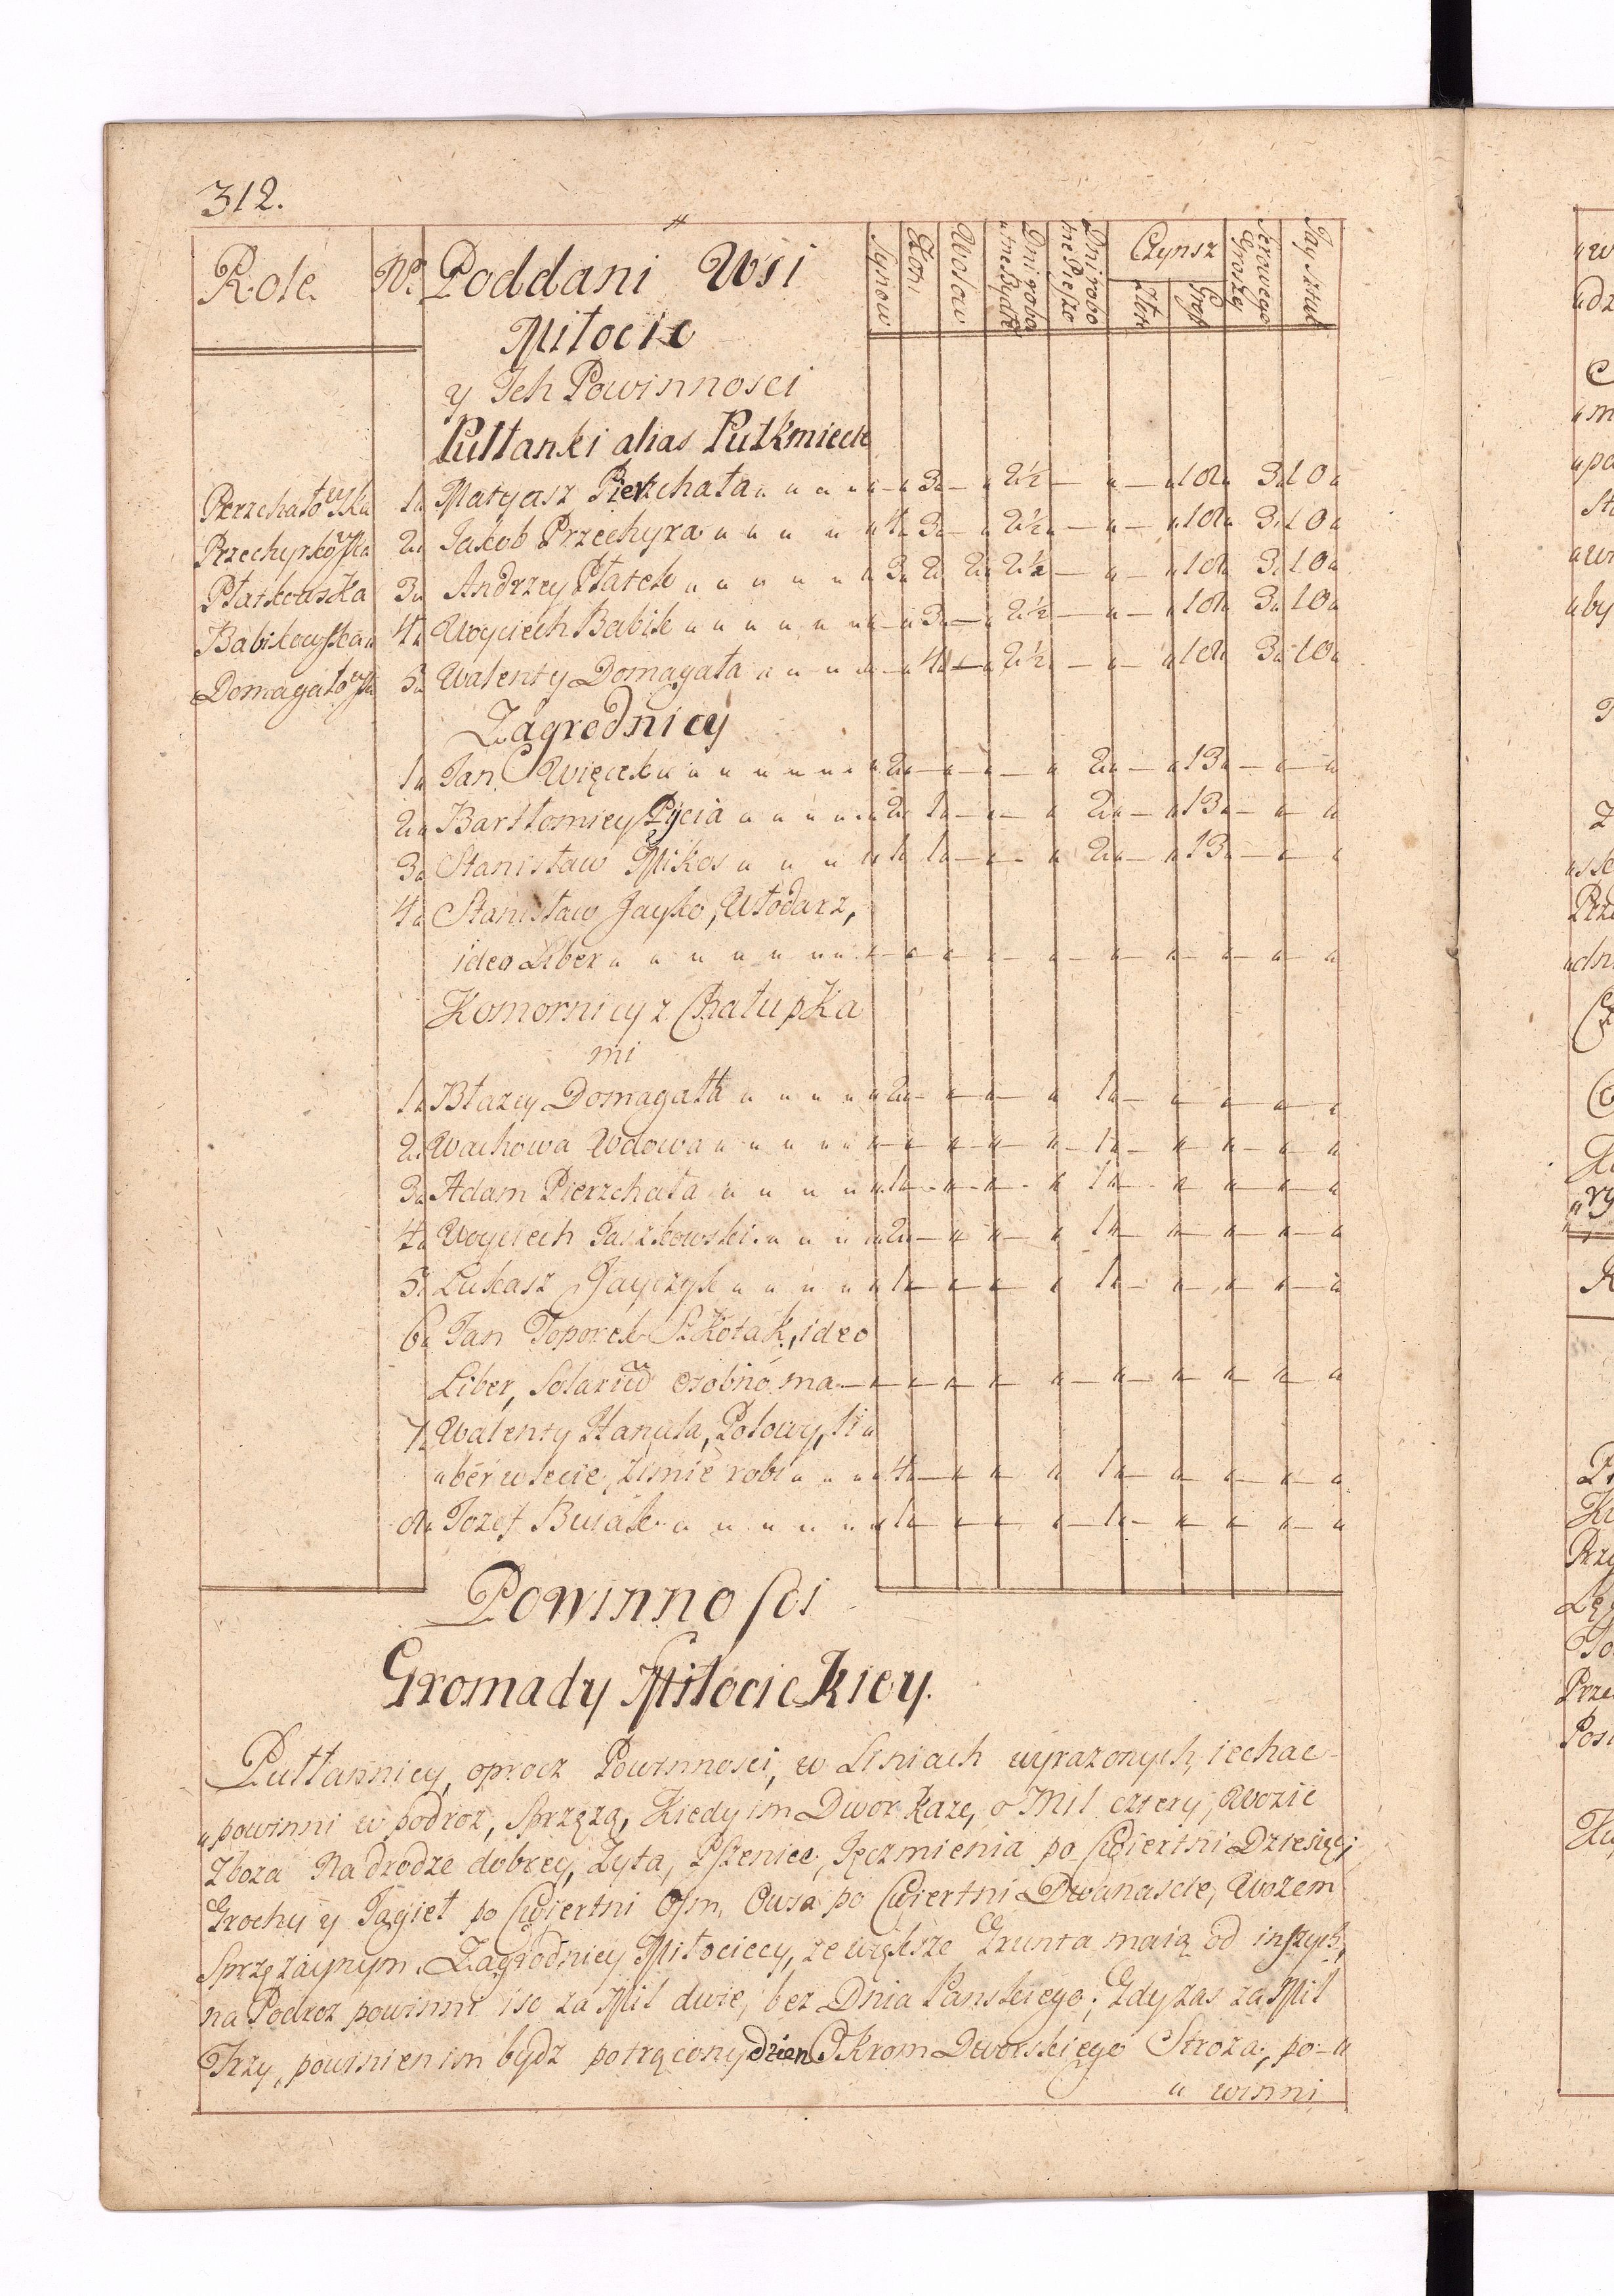 312.
Role. No. Poddani Wsi Synow Koni Wołow Dni robo me Bydłe Dni robo me Pieszo Czynsz Złot: Grosz Serowego Groszy Jay sztuk
Miłocic
y Ich Powinnosci
Pułłanki alias Pułkmiecie
Pierzchałowska 1 Matyasz Pierzchała 3 2½ 18 3 10
Przechyrkowska 2 Jakob Przechyra 4 3 2½ 18 3 10
Płatkowska 3 Andrzey Płatek 3 2 2 2½ 18 3 10
Babikowska 4 Woyciech Babik 3 2½ 18 3 10
Domagałowska 5 Walenty Domagała 4 2½ 18 3 10
Zagrodnicy
1 Jan Cwięcek 2 2 13
2 Bartłomiey Pycia 2 1 2 13
3 Stanisław Mikos 1 1 2 13
4 Stanisław Jayko, Włodarz,
ideo Liber
Komornicy z Chałupka
mi
1 Błazey Domagała 2 1
2 Wachowa Wdowa 1
3 Adam Pierzchała 1 1
4 Woyciech Jaszkowski 2 1
5 Łukasz Jayczyk 1 1
6 Jan Toporek Szkolak, ideo
Liber, Solariũ osobno ma
7 Walenty Hanula, Polowy, li
ber w lecie, zimie robi 4 1
8 Jozef Busak 1 1
Powinnosci
Gromady Miłocickiey.
Pułłannicy, oprocz Powinnosci, w Liniach wyrazonych, iechac
powinni w podroz, Sprzęzą, Kiedy im Dwor kaze, o Mil cztery, Wozic
zboza Na drodze dobrey, Zyta, Pszenice, Jęczmienia po Cwiertni Dziesięć;
Grochy y Jagieł po Cwiertni Osm, Owsa po Cwiertni Dwanascie, Wozem
Sprzęzaynym. Zagrodnicy Miłociccy, ze większe Grunta maią od inszych,
na Podroz powinni iść za Mil dwie, bez Dnia Panskiego; Gdy zas za Mil
Trzy, powinien im bydz potrącony dzien. Okrom Dworskiego Stroza, po-
winni